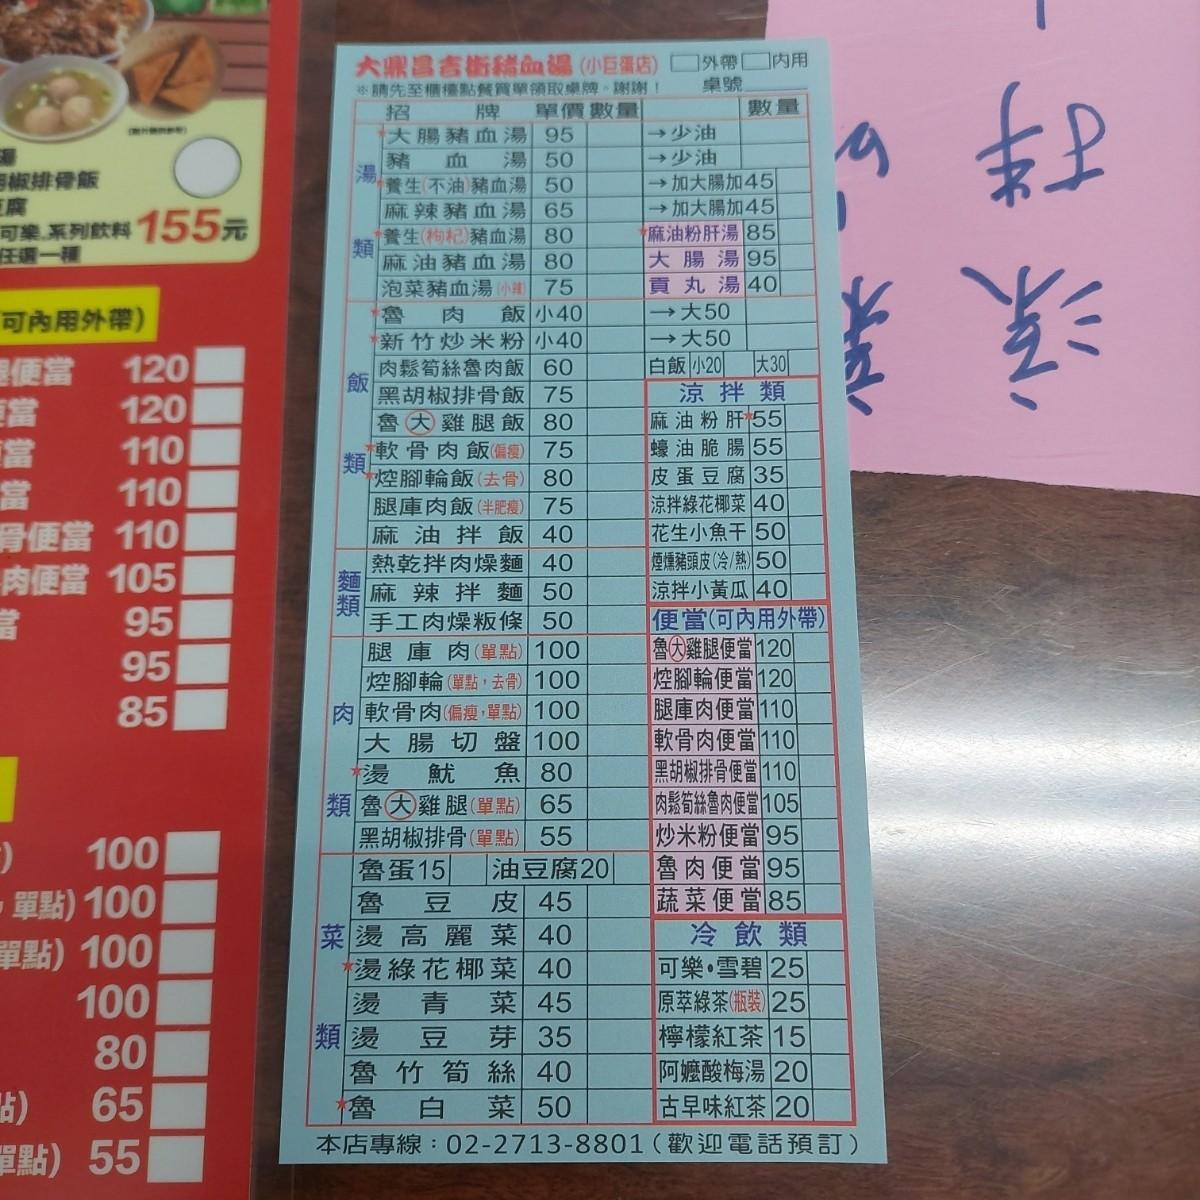 大鼎昌吉街豬血湯(小巨蛋店) 外帶 內用
※請先至櫃檯點餐買單領取桌牌。謝謝! 桌號
招牌 單價 數量 數量
湯類
*大腸豬血湯 95 →少油
豬血湯 50 →少油
*養生(不油)豬血湯 50 →加大腸加45
麻辣豬血湯 65 →加大腸加45
*養生(枸杞)豬血湯 80 *麻油粉肝湯 85
麻油豬血湯 80 大腸湯 95
泡菜豬血湯(小辣) 75 貢丸湯 40
飯類
*魯肉飯 小40 →大50
*新竹炒米粉 小40 →大50
肉鬆筍絲魯肉飯 60 白飯 小20 大30
黑胡椒排骨飯 75
魯大雞腿飯 80
*軟骨肉飯(偏瘦) 75
*焢腳輪飯(去骨) 80
腿庫肉飯(半肥瘦) 75
麻油拌飯 40
麵類
熱乾拌肉燥麵 40
麻辣拌麵 50
手工肉燥粄條 50
肉類
腿庫肉(單點) 100
焢腳輪(單點,去骨) 100
軟骨肉(偏瘦,單點) 100
大腸切盤 100
*燙魷魚 80
魯大雞腿(單點) 65
黑胡椒排骨(單點) 55
菜類
魯蛋15 油豆腐20
魯豆皮 45
燙高麗菜 40
*燙綠花椰菜 40
燙青菜 45
燙豆芽 35
魯竹筍絲 40
*魯白菜 50
涼拌類
麻油粉肝*55
蠔油脆腸 55
皮蛋豆腐 35
涼拌綠花椰菜 40
花生小魚干 50
煙燻豬頭皮(冷/熱) 50
涼拌小黃瓜 40
便當(可內用外帶)
魯大雞腿便當 120
焢腳輪便當 120
腿庫肉便當 110
軟骨肉便當 110
黑胡椒排骨便當 110
肉鬆筍絲魯肉便當 105
炒米粉便當 95
魯肉便當 95
蔬菜便當 85
冷飲類
可樂•雪碧 25
原萃綠茶(瓶裝) 25
檸檬紅茶 15
阿嬤酸梅湯 20
古早味紅茶 20
本店專線:02-2713-8801(歡迎電話預訂)
湯
胡椒排骨飯
豆腐
可樂.系列飲料 155元
任選一種
(可內用外帶)
腿便當 120
便當 120
便當 110
當 110
骨便當 110
肉便當 105
當 95
95
85
100
,單點) 100
單點) 100
100
80
點) 65
單點) 55
涼拌